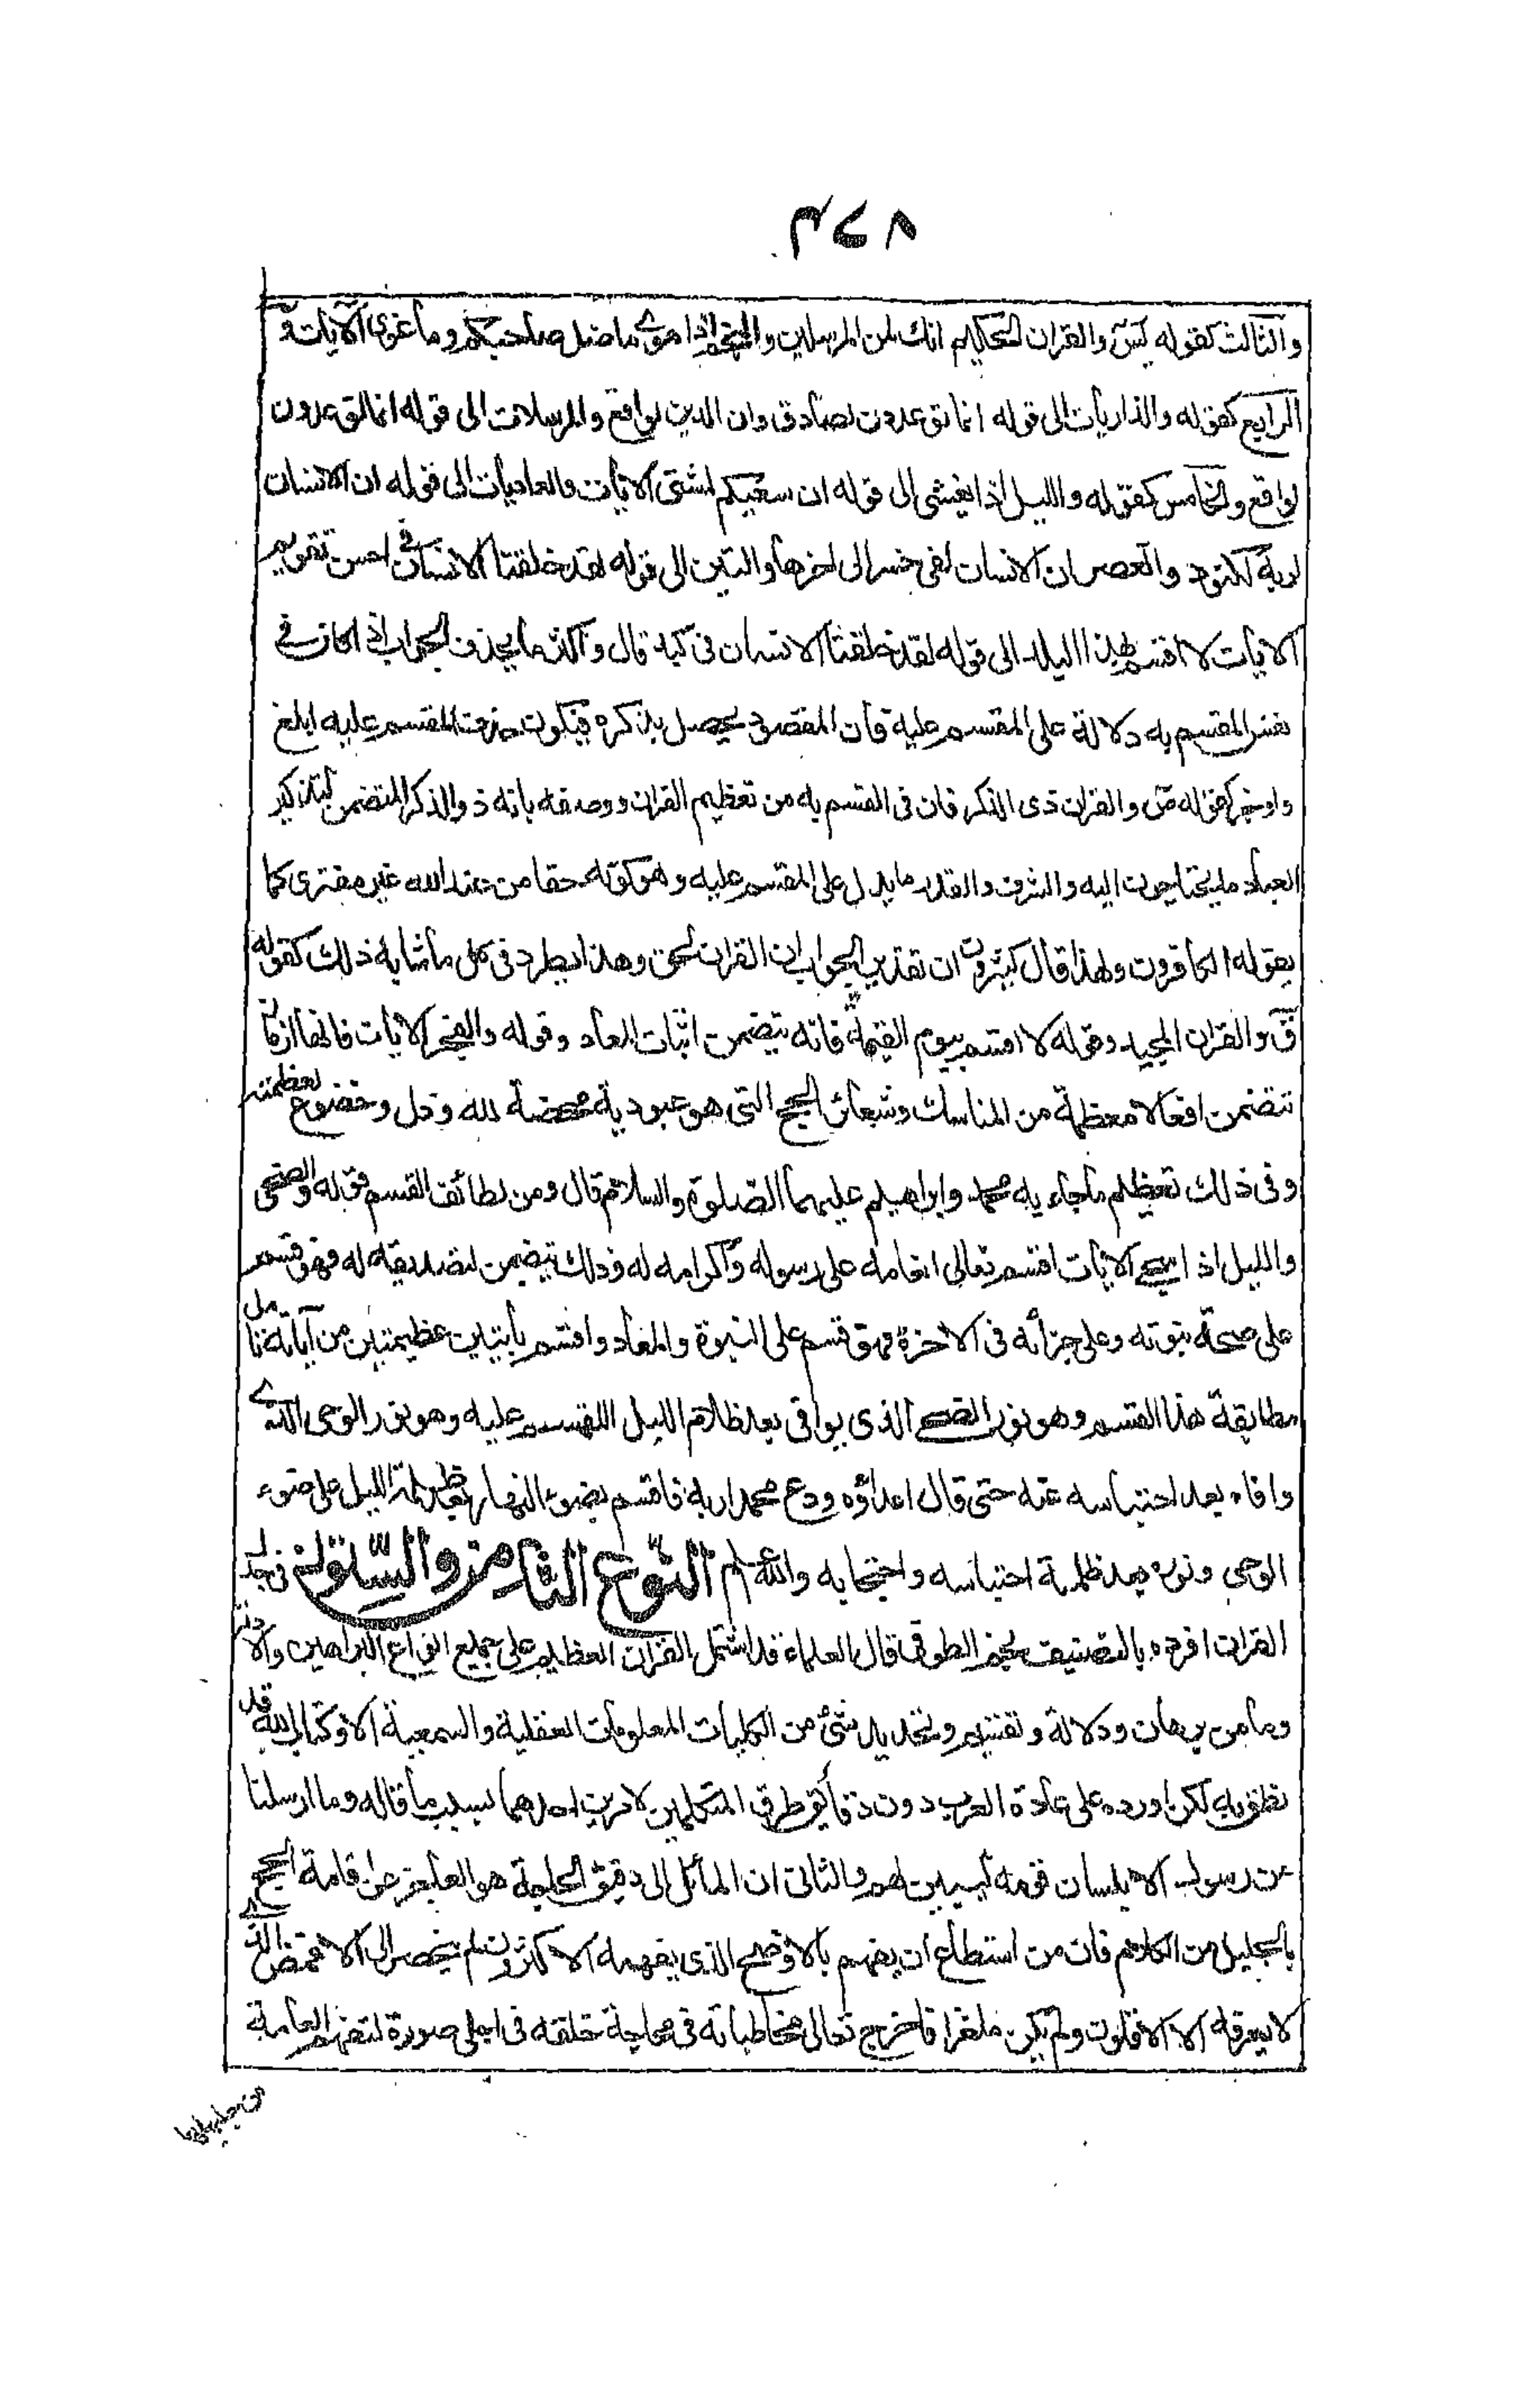 ٣٧٨
والثالث كقوله يٰسٓ والقران الحكيم انك لمن المرسلين والنجم اذا هوى ما ضل صاحبكم وما غوى الآيات و
الرابع كقوله والذاريات الى قوله انما توعدون لصادق وان الدين لواقع والمرسلات الى قوله انما توعدون
لواقع والخامس كقوله والليل اذا يغشى الى قوله ان سعيكم لشتى الآيات والعاديات الى قوله ان الانسان
لربه لكنود والعصر ان الانسان لفى خسر الى اخرها والتين الى قوله لقد خلقنا الانسان فى احسن تقويم
الآيات لا اقسم بهذا البلد الى قوله لقد خلقنا الانسان فى كبد قال واكثر ما يحذف الجواب اذا كان فى
نفس المقسم به دلالة على المقسم عليه فان المقصود يحصل بذكره فيكون حذف المقسم عليه ابلغ
واوجز كقوله صٓ والقران ذى الذكر فان فى القسم به من تعظيم القران ووصفه بانه ذو الذكر المتضمن لتذكير
العباد ما يحتاجون اليه والشرف والقدر ما يدل على المقسم عليه وهو كونه حقا من عند الله غير مفترى كما
يقوله الكافرون ولهذا قال كثيرون ان تقدير الجواب ان القران لحق وهذا يطرد فى كل ما شابه ذلك كقوله
قٓ والقران المجيد وقوله لا اقسم بيوم القيمة فانه يتضمن اثبات المعاد وقوله والفجر الآيات فانها ازمان
تتضمن افعالا معظمة من المناسك وشعائر الحج التى هو عبودية محضة لله وذل وخضوع لعظمته
وفى ذلك تعظيم ما جاء به محمد وابراهيم عليهما الصلوة والسلام قال ومن لطائف القسم قوله والضحى
والليل اذا سجى الآيات اقسم تعالى انعامه على رسوله واكرامه له وذلك يتضمن لتصديقه له فهو قسم
على صحة نبوته وعلى جزائه فى الآخرة فهو قسم على النبوة والمعاد واقسم بآيتين عظيمتين من آياته تامل
مطابقة هذا القسم وهو نور الضحى الذى يوافى بعد ظلام الليل المقسم عليه وهو نور الوحى الذى
وافاه بعد احتباسه عنه حتى قال اعداؤه ودع محمدا ربه فاقسم بضوء النهار بعد ظلمة الليل على ضوء
الوحى ونوره بعد ظلمة احتباسه واحتجابه والله اعلم النوع الثامن والستون فى جدل
القران افرده بالتصنيف نجم الطوفى قال العلماء قد اشتمل القران العظيم على جميع انواع البراهين والادلة
وما من برهان ودلالة وتقسيم وتحديد شئ من الكليات المعلومات العقلية والسمعية الا وكتاب الله قد
نطق به لكن اورده على عادة العرب دون دقائق طرق المتكلمين لامرين احدهما بسبب ما قاله وما ارسلنا
من رسول الا بلسان قومه ليبين لهم والثانى ان المائل الى دقيق المحاجة هو العاجز عن اقامة الحجج
بالجليل من الكلام فان من استطاع ان يفهم بالاوضح الذى يفهمه الاكثرون لم ينحصر الى الاغمض الذى
لا يعرفه الا الاقلون ولم يكن ملغزا فاخرج تعالى مخاطباته فى محاجة خلقه فى اجلى صورة لتفهم العامة
من جليلها